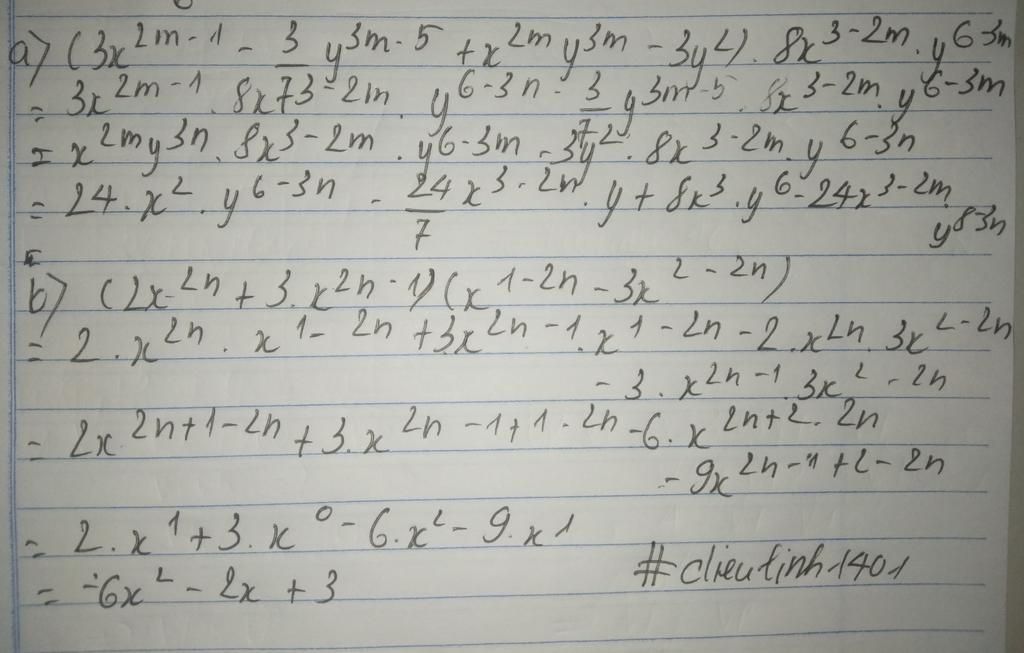 a) (3x^{2m-1} - \frac{3}{7} y^{3m-5} + x^{2m} y^{3m} - 3y^2) . 8x^{3-2m} . y^{6-3m}
= 3x^{2m-1} . 8x^{3-2m} . y^{6-3n} - \frac{3}{7} y^{3m-5} . 8x^{3-2m} . y^{6-3m}
= x^{2m} y^{3n} . 8x^{3-2m} . y^{6-3m} - 3y^2 . 8x^{3-2m} . y^{6-3n}
= 24 . x^2 . y^{6-3n} - \frac{24}{7} x^{3-2n} . y + 8x^3 . y^6 - 24x^{3-2m}
y^{8-3n}
b) (2x^{2n} + 3 . x^{2n-1}) (x^{1-2n} - 3x^{2-2n})
= 2 . x^{2n} . x^{1-2n} + 3x^{2n-1} . x^{1-2n} - 2 . x^{2n} . 3x^{2-2n}
- 3 . x^{2n-1} . 3x^{2-2n}
= 2x^{2n+1-2n} + 3 . x^{2n-1+1-2n} - 6 . x^{2n+2-2n}
- 9x^{2n-1+2-2n}
= 2 . x^1 + 3 . x^0 - 6 . x^2 - 9 . x^1
= -6x^2 - 2x + 3
#dieutinh1401